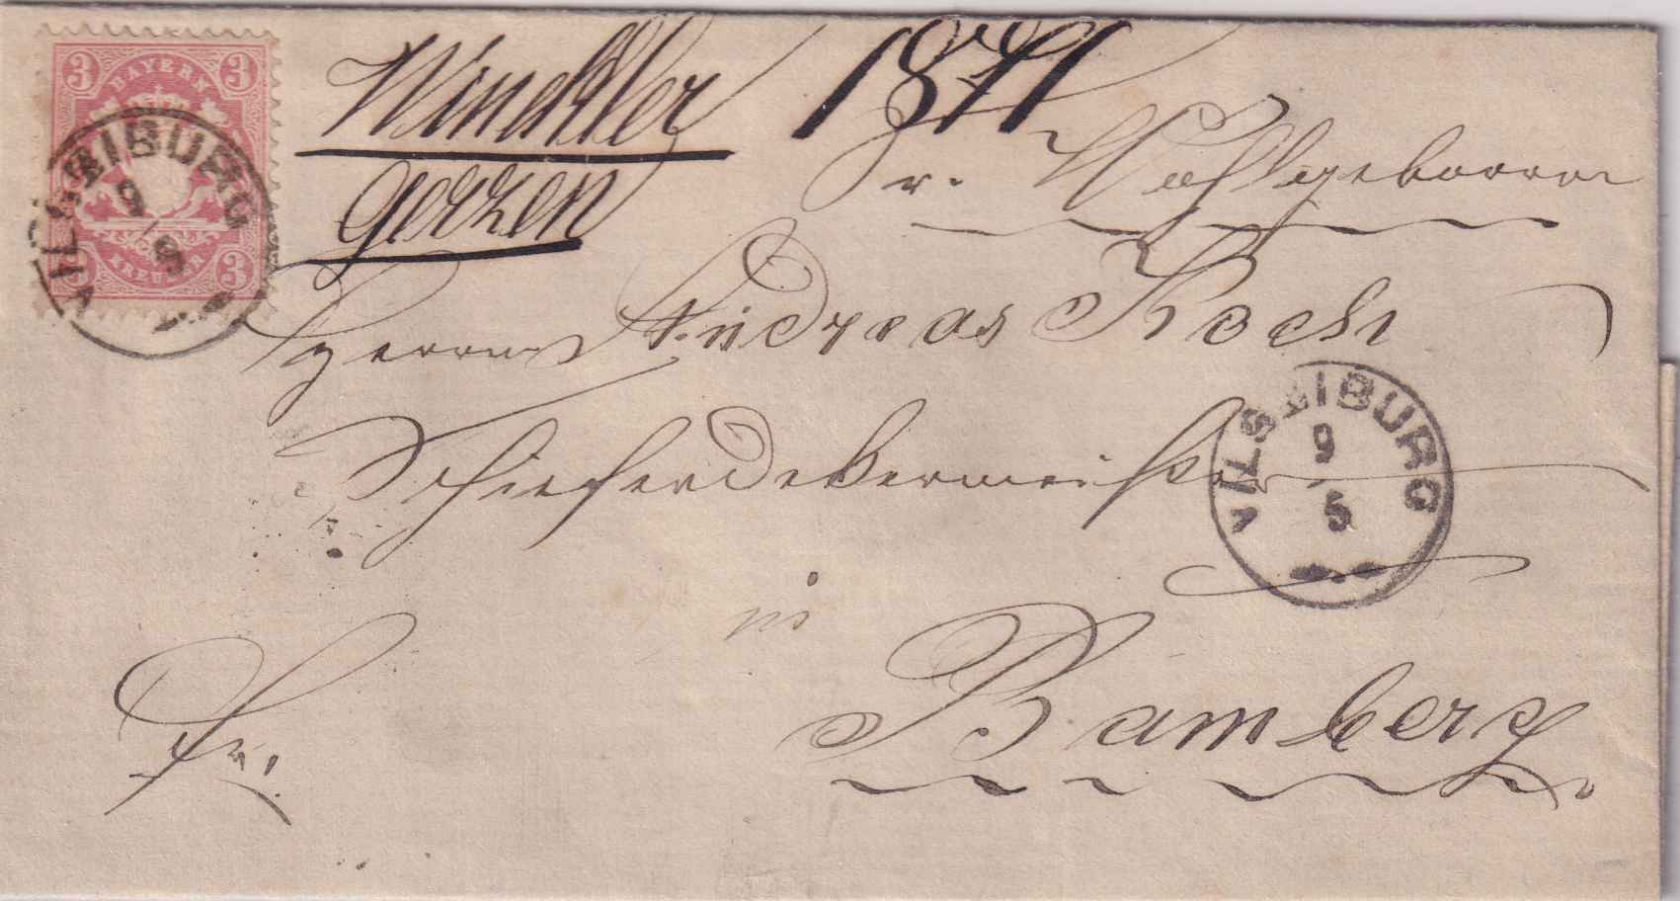 3 BAYERN 3
3 KREUZER 3
VILSBIBURG
9/5
Winckler 1871
Gerzen
Sr. Wohlgeboren
Herrn Andreas Koch
Schieferdekermeister
VILSBIBURG
9/5
in
Bamberg
Fr.